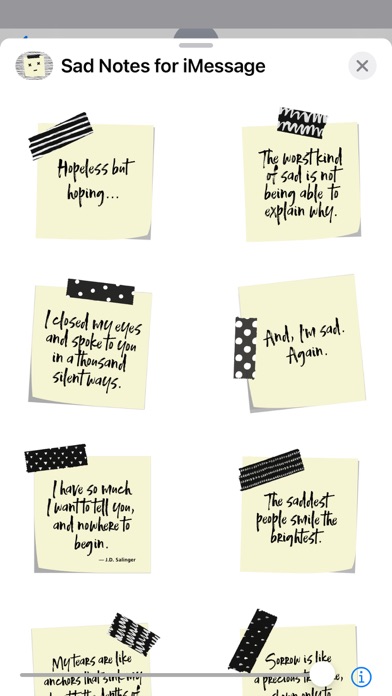 Sad Notes for iMessage
Hopeless but
hoping...
The worst kind
of sad is not
being able to
explain why.
I closed my eyes
and spoke to you
in a thousand
silent ways.
And, I'm sad.
Again.
I have so much
I want to tell you,
and nowhere to
begin.
— J.D. Salinger
The saddest
people smile the
brightest.
My tears are like
anchors that sink my
Sorrow is like
a precious